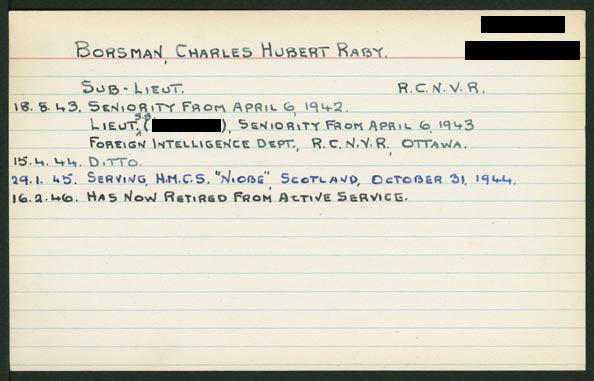 BORSMAN, CHARLES HUBERT RABY.
SUB-LIEUT. R.C.N.V.R.
18.8.43. SENIORITY FROM APRIL 6, 1942.
LIEUT. S.B. (), SENIORITY FROM APRIL 6, 1943
FOREIGN INTELLIGENCE DEPT., R.C.N.V.R, OTTAWA.
15.4.44. DITTO.
29.1.45. SERVING, H.M.C.S. "NIOBE", SCOTLAND, OCTOBER 31, 1944.
16.2.46. HAS NOW RETIRED FROM ACTIVE SERVICE.